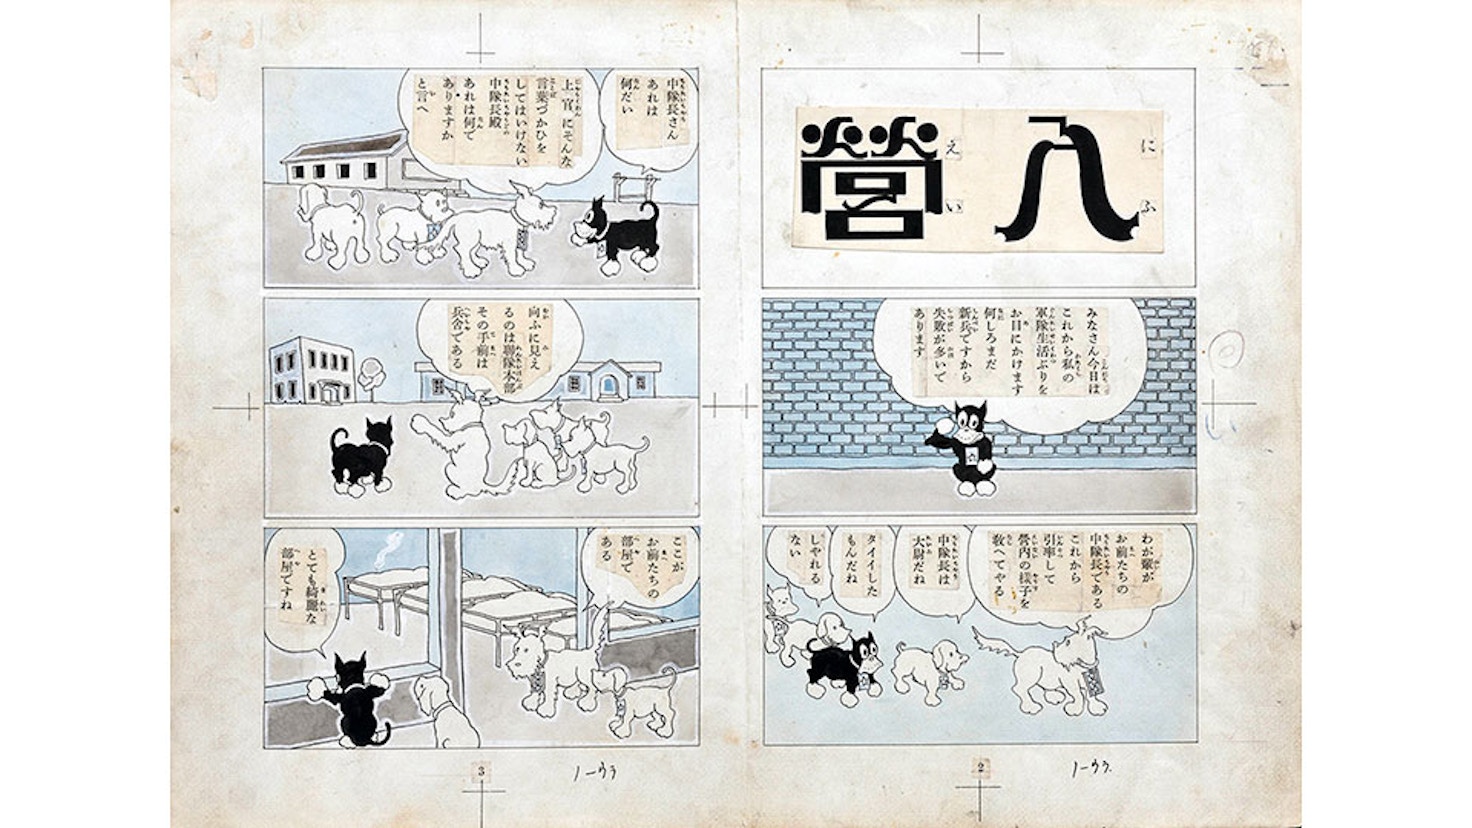 入営
にふ
えい
みなさん今日は
これから私の
軍隊生活ぶりを
お目にかけます
何しろまだ
新兵ですから
失敗が多いて
あります
わが輩が
お前たちの
中隊長である
これから
引率して
営内の様子を
教へてやる
中隊長は
大尉だね
タイイした
もんだね
しやれる
ない
中隊長さん
あれは
何だい
上官にそんな
言葉づかひを
してはいけない
中隊長殿
あれは何で
ありますか
と言へ
向ふに見え
るのは聯隊本部
その手前は
兵舎である
ここが
お前たちの
部屋で
ある
とても綺麗な
部屋ですね
2
3